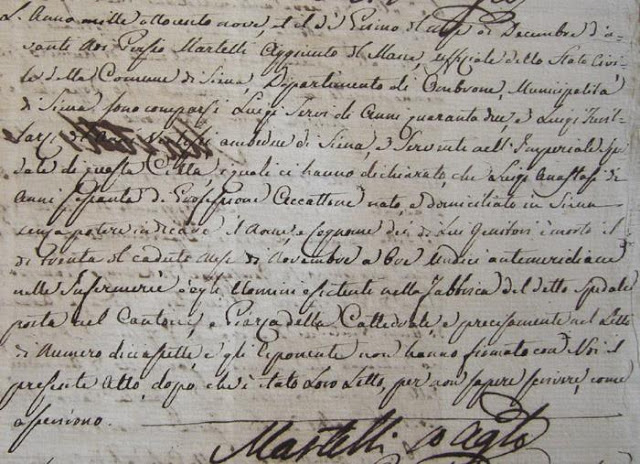 L'Anno mille ottocento nove, e il dì Primo del mese di Decembre d'in=
nante Noi Persio Martelli Aggiunto al Maire, uffiziale dello Stato Civi=
le della Comune di Siena, Dipartimento di Ombrone, Municipalità
di Siena, sono comparsi Luigi di Anni quaranta due, e Luigi
ambedue di Siena, e Servente nell'Imperiale Spe
dale di questa Città, i quali ci hanno dichiarato, che Luigi Anastasi di
Anni sessanta di Professione Accattone nato, e domiciliato in Siena
senza potere indicare il Nome, e Cognome dei di Lui Genitori è morto il
dì trenta del caduto mese di Novembre a Ore Undici antemeridiane
nelle Infermerie degli Uomini esistenti nella Fabbrica del detto Spedale
posta nel Cantone, e Piazza della Cattedrale, e precisamente nel Letto
di Numero diciassette e gli Esponenti non hanno firmato con Noi il
presente Atto, dopo che è stato Loro Letto, per non sapere scrivere, come
asserirono.
Martelli Agto